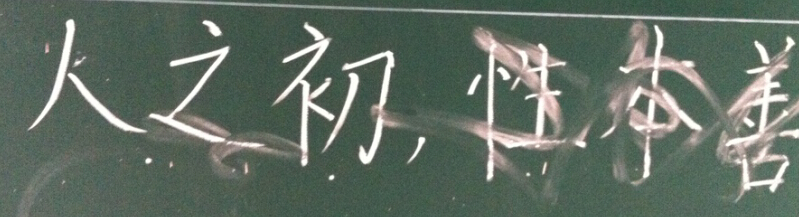 人之初，性本善